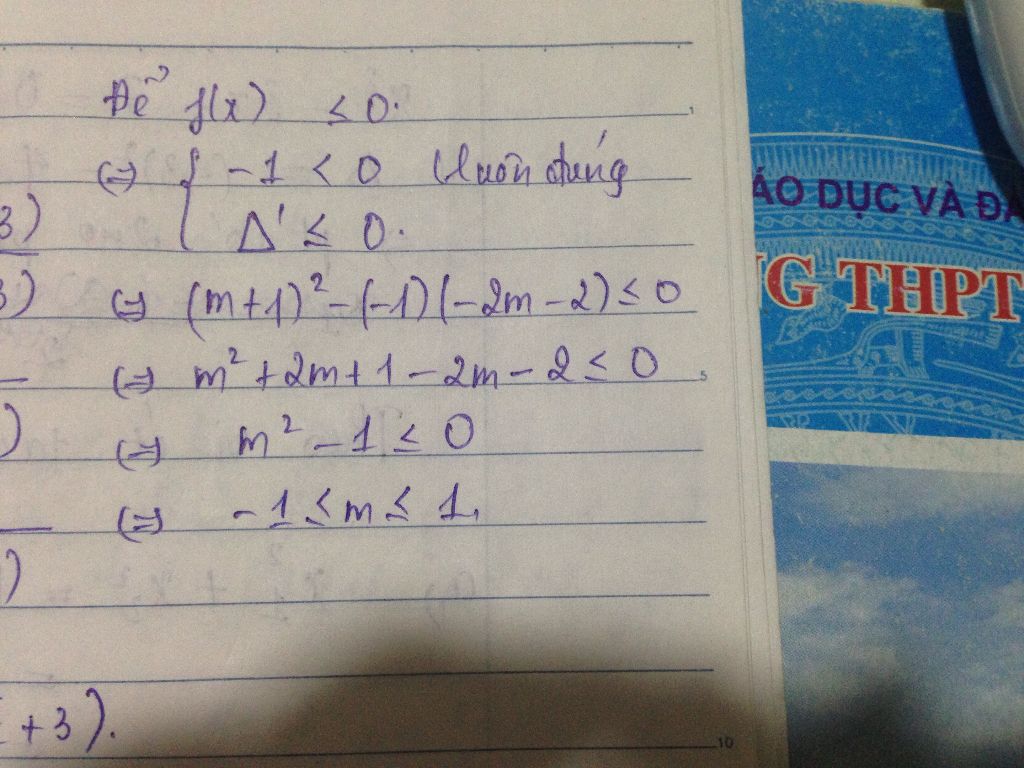 Để f(x) ≤ 0.
(=) { -1 < 0 (luôn đúng
Δ' ≤ 0.
3)
3) (=) (m+1)² - (-1)(-2m-2) ≤ 0
(=) m² + 2m + 1 - 2m - 2 ≤ 0
) (=) m² - 1 ≤ 0
(=) -1 ≤ m ≤ 1.
)
+3).
5
10
ÁO DỤC VÀ ĐÀ
NG THPT